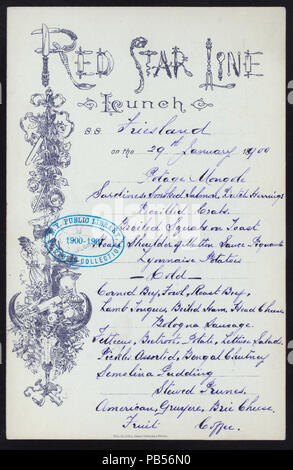 RED STAR LINE
Lunch
S.S. Friesland
on the 29th January 1900
Potage Mongole
Sardines, Smoked Salmon, Dutch Herrings
Broiled Squabs on Toast
Roast Shoulder of Mutton Sauce Piquante
Lyonnaise Potatoes
Cold
Corned Beef, Fowl, Roast Beef,
Lamb Tongues, Boiled Ham, Head Cheese
Bologna Sausage.
Beetroot, Potato, Lettuce Salad
Pickles Assorted, Bengal Chutney
Semolina Pudding
Stewed Prunes.
American, Gruyere, Brie Cheese.
Fruit Coffee.
N.Y. PUBLIC LIBRARY
1900-190
COLLECTION
alamy
Image ID: PB56N0
www.alamy.com